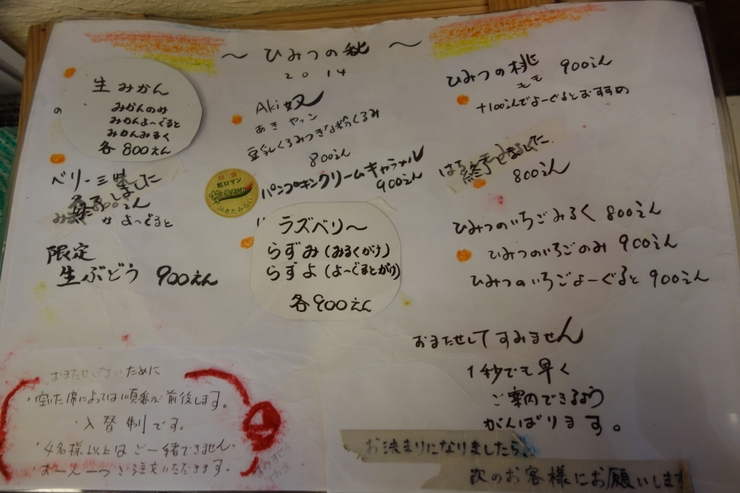 〜 ひみつの秋 〜
2014
生みかん
みかんのみ
みかんよ〜ぐると
みかんみるく
各800えん
ベリー三
終了しました
よ〜ぐると
限定
生ぶどう 900えん
Aki奴
あき ヤッコ
豆乳くるみつぎなぉくるみ
800えん
パンプキンクリームキャラメル
900えん
ラズベリ〜
らずみ(みるくがけ)
らずよ(よ〜ぐるとがけ)
各900えん
ひみつの桃 900えん
もも
+100えんでよ〜ぐるとおすすめ
終了しました
800えん
ひみつのいちごみるく 800えん
ひみつのいちごのみ 900えん
ひみつのいちごよーぐると 900えん
おまたせしてすみません
1秒でも早く
ご案内できるよう
がんばります。
お決まりになりましたら、
次のお客様にお願いします
おまたせしないために
・空いた席によっては順番が前後します。
・入替制です。
・4名様以上はご一緒できません
・お一人一つご注文いただきます。